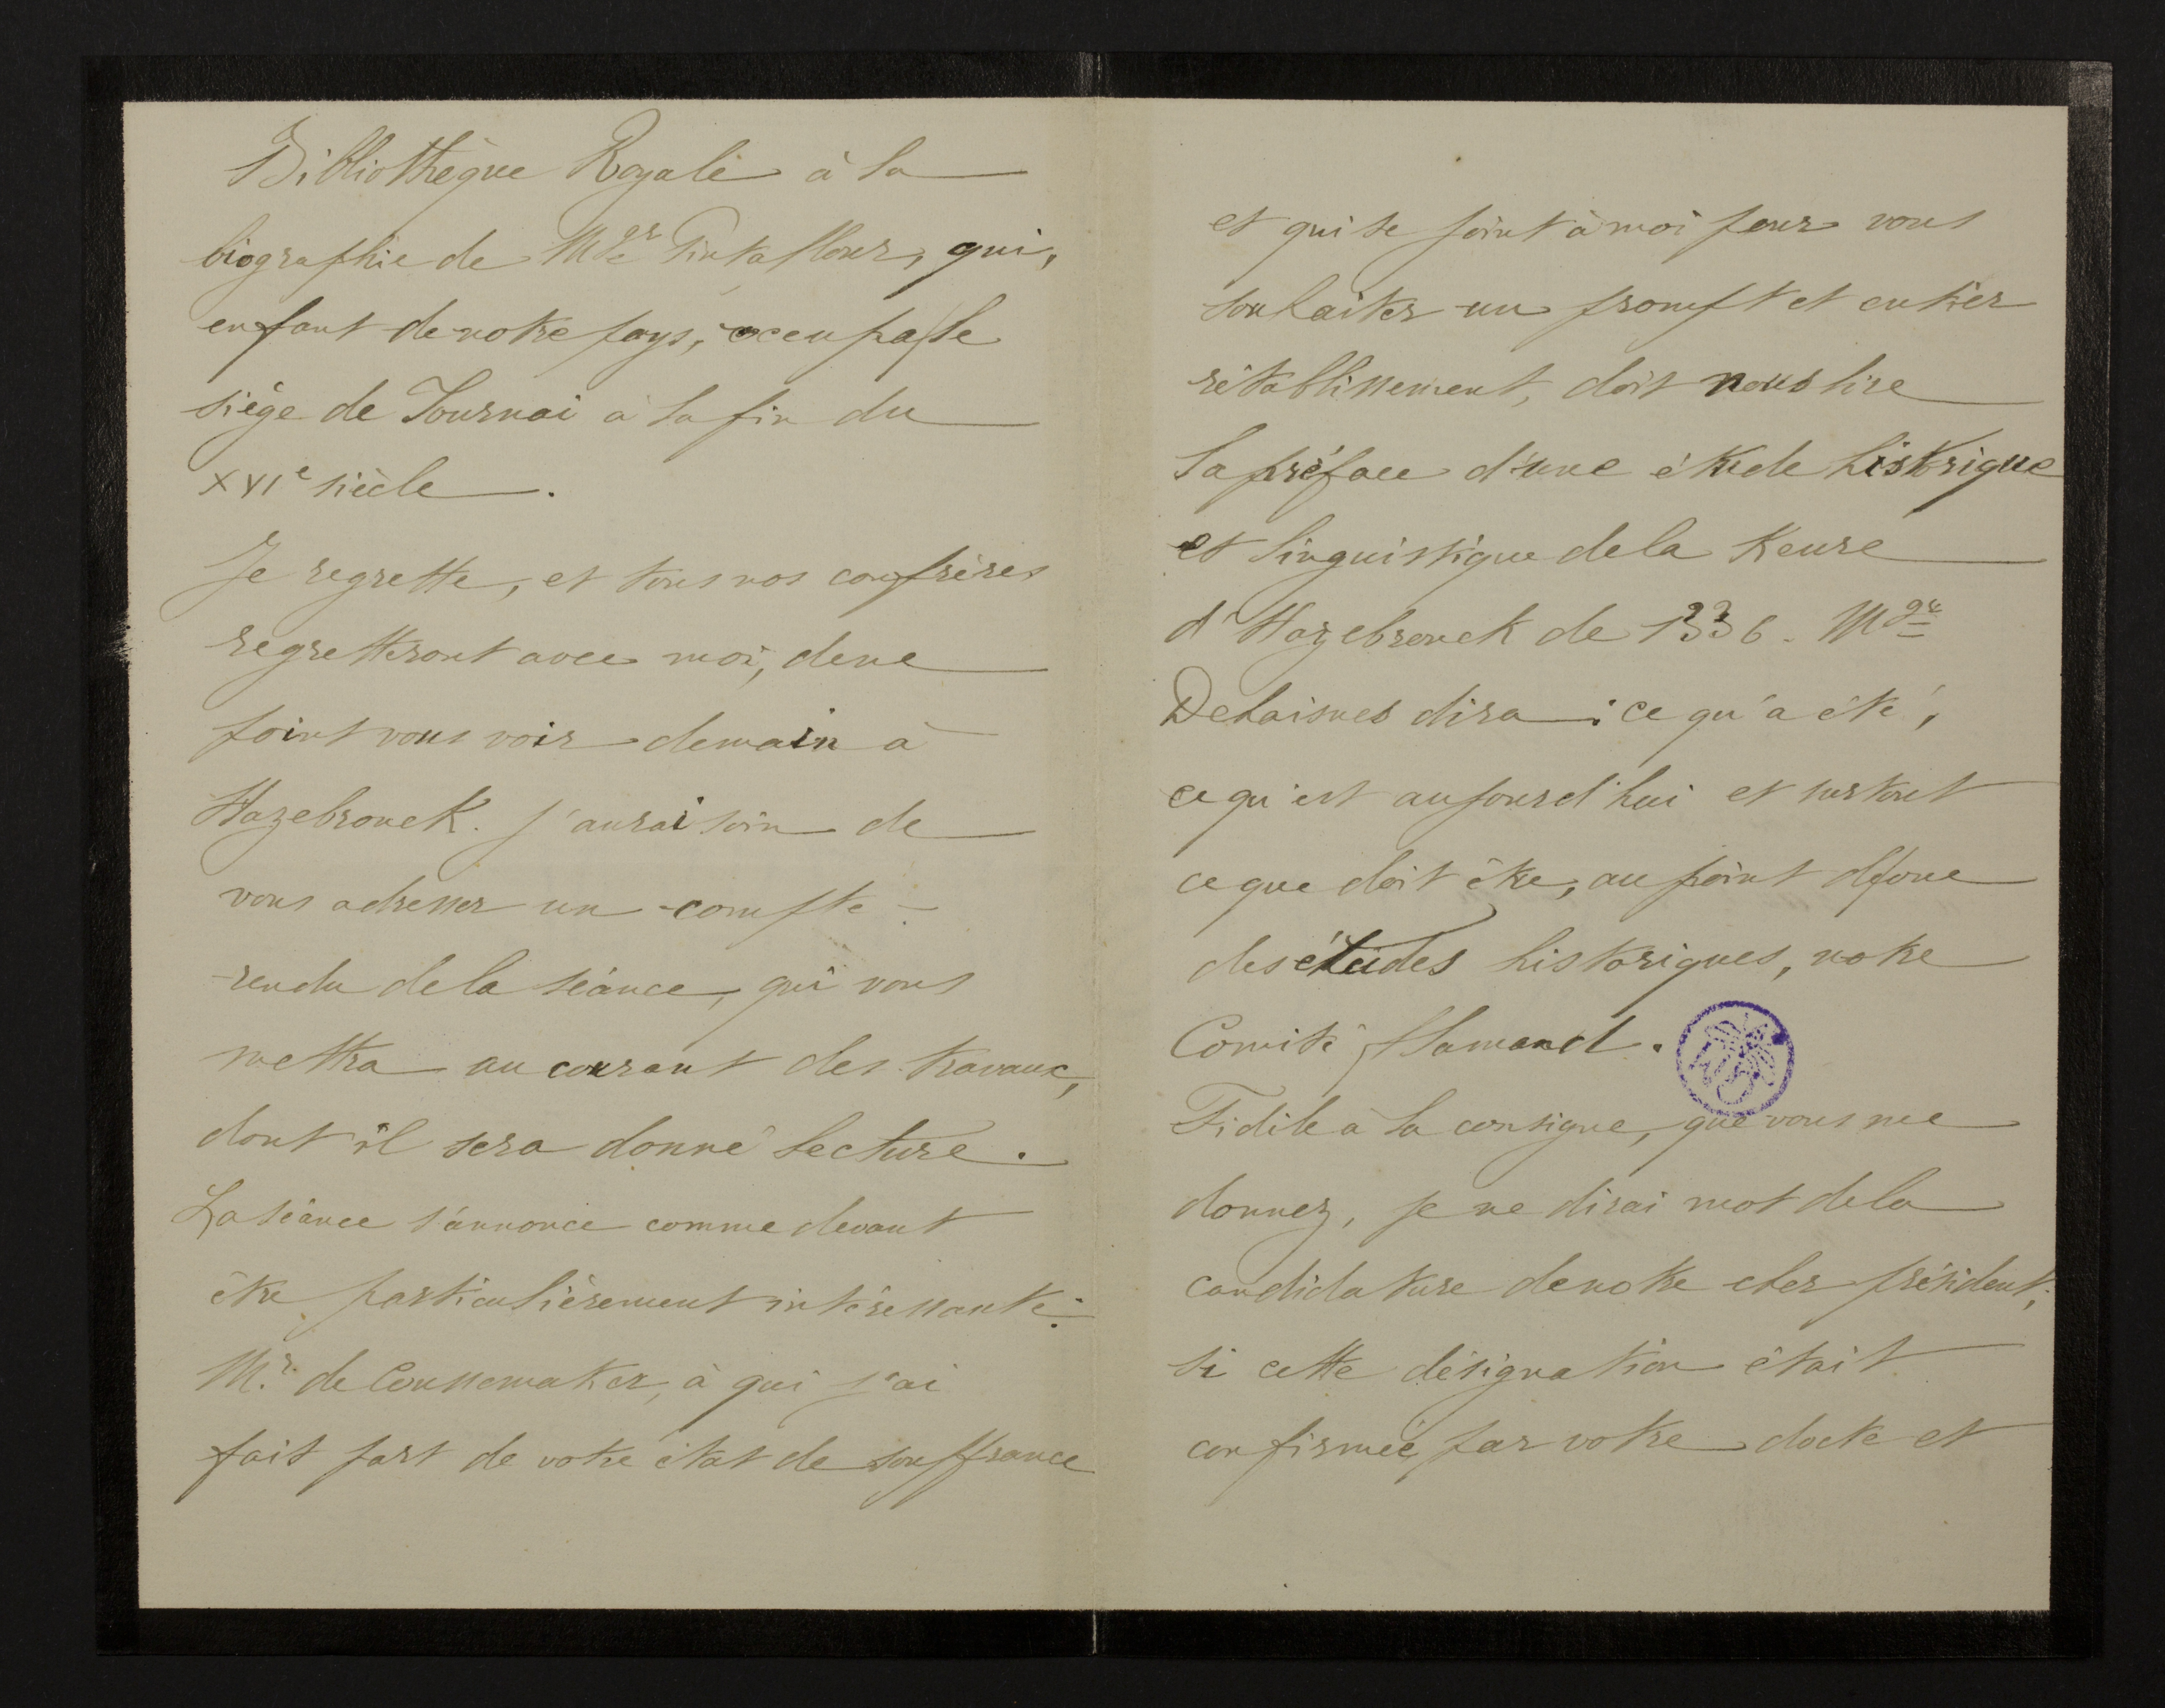 Bibliothèque Royale à la
biographie de Mgr Pintaflour, qui,
enfant de notre pays, occupa le
siége de Tournai à la fin du
XVIe siècle.
Je regrette, et tous nos confrères
regretteront avec moi, de ne
point vous voir demain à
Hazebrouck. J'aurai soin de
vous adresser un compte-
rendu de la séance, qui vous
mettra au courant des travaux,
dont il sera donné lecture.
La séance s'annonce comme devant
être particulièrement intéressante.
Mr. de Coussemaker, à qui j'ai
fait part de votre état de souffrance
et qui se joint à moi pour vous
souhaiter un prompt et entier
rétablissement, doit nous lire
la préface d'une étude historique
et linguistique de la Keure
d'Hazebrouck de 1336. Mgr
Dehaisnes dira : ce qu'a été,
ce qu'est aujourd'hui et surtout
ce que doit être, au point de vue
des études historiques, notre
Comité flamand.
Fidèle à la consigne, que vous me
donnez, je ne dirai mot de la
candidature de notre cher président;
si cette désignation était
confirmée par votre docte et